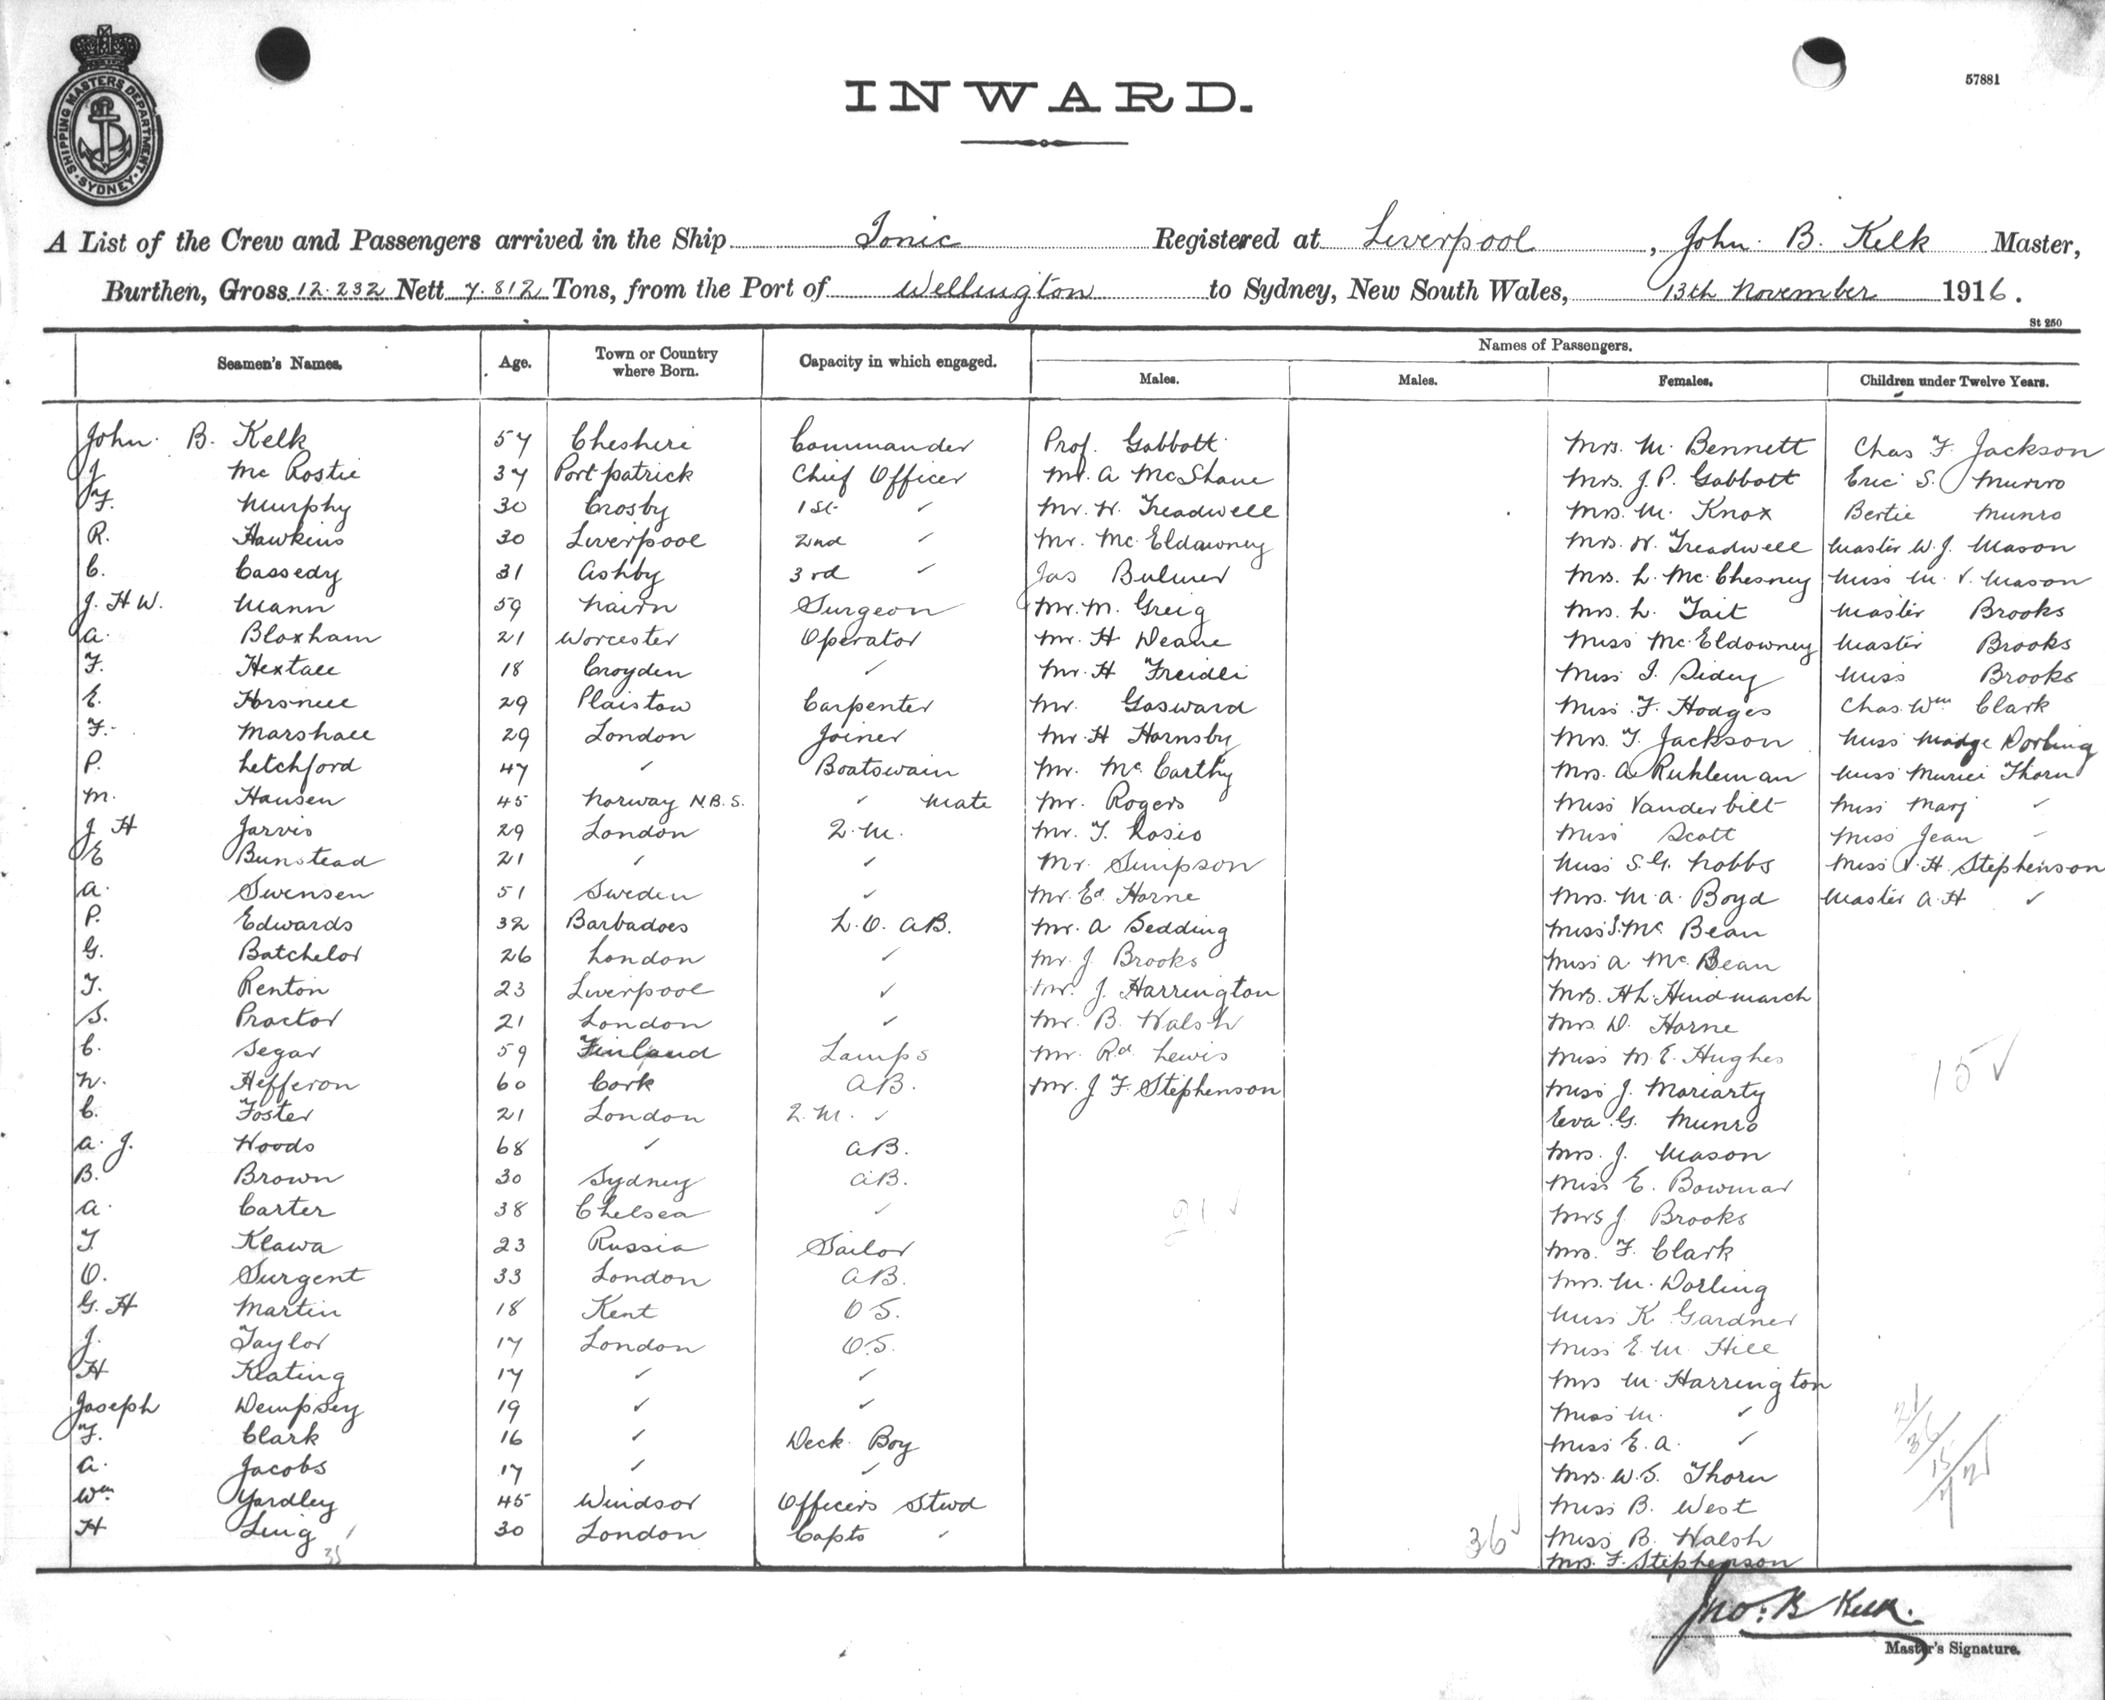 SHIPPING MASTERS DEPARTMENT. SYDNEY.
57881
INWARD.
A List of the Crew and Passengers arrived in the Ship Ionic Registered at Liverpool, John B. Kelk Master,
Burthen, Gross 12.232 Nett 7.812 Tons, from the Port of Wellington to Sydney, New South Wales, 13th November 1916.
St 250
Names of Passengers.
Seamen's Names. Age. Town or Country where Born. Capacity in which engaged. Males. Males. Females. Children under Twelve Years.
John B. Kelk 57 Cheshire Commander Prof. Gabbott Mrs. M. Bennett Chas F. Jackson
J Mc Rostie 37 Portpatrick Chief Officer Mr. A McShane Mrs. J. P. Gabbott Eric S. Munro
F. Murphy 30 Crosby 1st ✓ Mr. W. Treadwell Mrs. M. Knox Bertie Munro
R. Hawkins 30 Liverpool 2nd ✓ Mr. McEldowney Mrs. W. Treadwell Master W. J. Mason
C. Cassedy 31 Ashby 3rd ✓ Jas Bulmer Mrs. L. McChesney Miss M. V. Mason
J. H W. Mann 59 Nairn Surgeon Mr. M. Greig Mrs. L. Tait Master Brooks
A. Bloxham 21 Worcester Operator Mr. H Deane Miss McEldowney Master Brooks
F. Hextall 18 Croyden ✓ Mr. H Freidli Miss I. Sidey Miss Brooks
E. Horsnell 29 Plaistow Carpenter Mr. Gosward Miss F. Hodges Chas. Wm Clark
F. Marshall 29 London Joiner Mr. H Hornsby Mrs. T. Jackson Miss Madge Dorling
P. Letchford 47 ✓ Boatswain Mr. McCarthy Mrs. A. Ruhleman Miss Muriel Thorn
M. Hansen 45 Norway N.B.S. ✓ Mate Mr. Rogers Miss Vanderbilt Miss Marj ✓
J H Jarvis 29 London Q.M. Mr. T. Rosio Miss Scott Miss Jean ✓
E Bunstead 21 ✓ ✓ Mr. Simpson Miss S. G. Nobbs Miss V. H. Stephenson
A. Swensen 51 Sweden ✓ Mr. Ed Horne Mrs. M. A. Boyd Master A. H ✓
P. Edwards 32 Barbadoes L.O. AB. Mr. A Sedding Miss I. Mc Bean
G. Batchelor 26 London ✓ Mr. J. Brooks Miss A McBean
T. Renton 23 Liverpool ✓ Mr. J. Harrington Mrs. H L. Hindmarch
S. Proctor 21 London ✓ Mr. B. Walsh Mrs D. Horne
C. Segar 59 Finland Lamps Mr. Rd Lewis Miss M. E. Hughes
W. Hefferon 60 Cork AB. Mr. J F. Stephenson Miss J. Moriarty 15 ✓
C. Foster 21 London Q.M. ✓ Eva G. Munro
A. J. Woods 68 ✓ AB. Mrs. J. Mason
B. Brown 30 Sydney AB. Miss E. Bowmar
A. Carter 38 Chelsea ✓ 21 ✓ Mrs J. Brooks
T. Klawa 23 Russia Sailor Mrs. F. Clark
O. Surgent 33 London AB. Mrs. M. Dorling
G. H Martin 18 Kent O S. Miss K Gardner
J. Taylor 17 London O.S. Miss E. M. Hill
H Keating 17 ✓ ✓ Mrs M. Harrington
Joseph Dempsey 19 ✓ ✓ Miss M. ✓
F. Clark 16 ✓ Deck Boy Miss E. A. ✓
A. Jacobs 17 ✓ ✓ Mrs. W. S. Thorn
Wm Yardley 45 Windsor Officers Stwd Miss B. West
H Ling 30 London Capts ✓ Miss B. Walsh
35 36 ✓ Mrs. F. Stephenson
21
36
15
72
Jno: B Kelk.
Master's Signature.